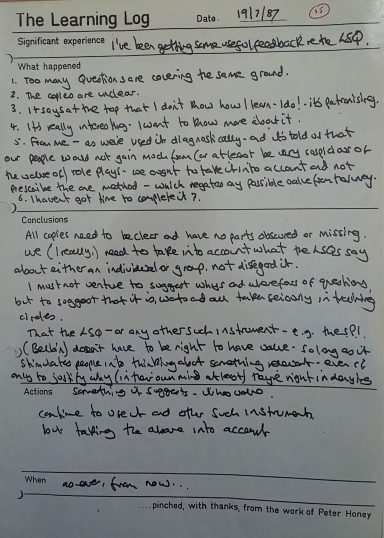 The Learning Log
Date. 19/7/87
15
Significant experience I've been getting some useful feedback re the LSQ.
What happened
1. Too many Questions are covering the same ground.
2. The copies are unclear.
3. It says at the top that I don't know how I learn - I do! - it's patronising.
4. It's really interesting - I want to know more about it.
5. From me - as we've used it diagnostically - and it's told us that
our people would not gain much from (or at least be very suspicious of
the value of) role plays - we ought to take it into account and not
prescribe the one method - which negates any possible value from
6. I haven't got time to complete it?
Conclusions
All copies need to be clear and have no parts obscured or missing.
We (I really) need to take into account what the LSQs say
about either an individual or group, not disregard it.
I must not venture to suggest whys and wherefores of questions,
but to suggest that it is, used and all taken seriously, in training
circles.
That the LSQ - or any other such instrument - e.g. the SPI
(Belbin) doesn't have to be right to have value - so long as it
stimulates people into thinking about something relevant - even if
only to justify why (in their own mind at least) they're right in denying
something it suggests -
Actions
continue to use it and other such instruments,
but taking the above into account
When as ever, from now...
....pinched, with thanks, from the work of Peter Honey